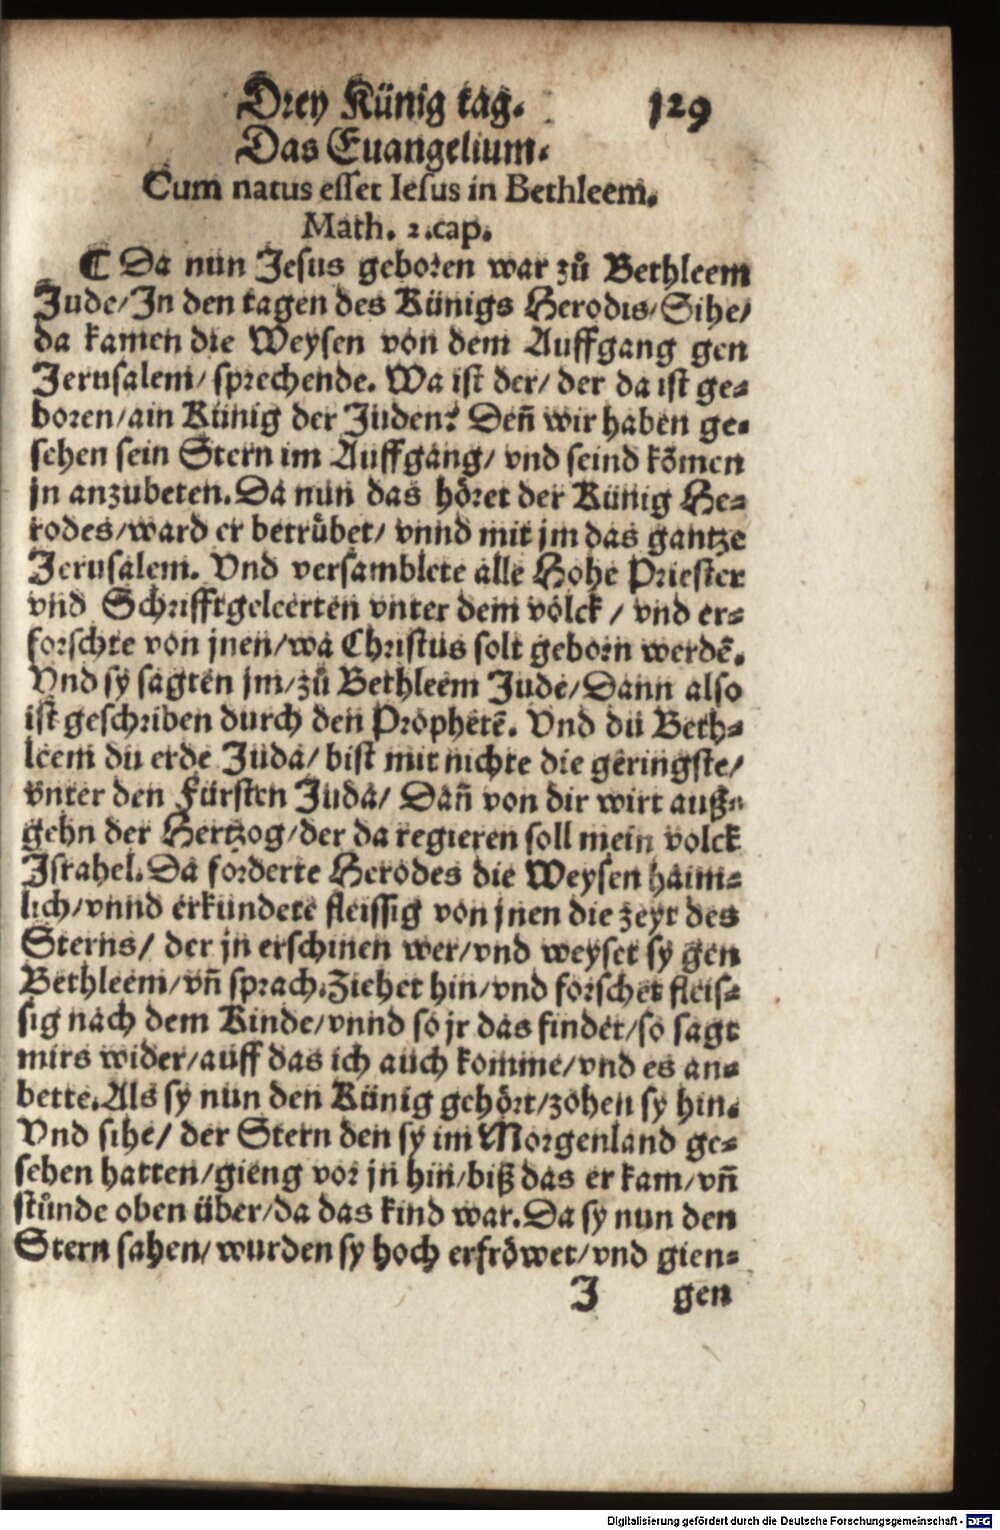 Drey Künig tag. 129
Das Euangelium.
Cum natus esset Iesus in Bethleem.
Math. 2.cap.
¶ Da nun Jesus geboren war zů Bethleem
Jude/In den tagen des Künigs Herodis/Sihe/
da kamen die Weysen von dem Auffgang gen
Jerusalem/ sprechende. Wa ist der/ der da ist ge-
boren/ain Künig der Juden? Deñ wir haben ge-
sehen sein Stern im Auffgang/ vnd seind kõmen
jn anzubeten. Da nun das höret der Künig He-
rodes/ward er betrůbet/ vnnd mit jm das gantze
Jerusalem. Vnd versamblete alle Hohe Priester
vnd Schrifftgeleerten vnter dem volck / vnd er-
forschte von jnen/wa Christus solt geborn werdẽ.
Vnd sy sagten jm/zů Bethleem Jude/Dann also
ist geschriben durch den Prophetẽ. Vnd du Beth-
leem du erde Juda/ bist mit nichte die geringste/
vnter den Fürsten Juda/ Dañ von dir wirt auß-
gehn der Hertzog/der da regieren soll mein volck
Israhel. Da forderte Herodes die Weysen haim-
lich/vnnd erkundete fleissig von jnen die zeyt des
Sterns/ der jn erschinen wer/vnd weyset sy gen
Bethleem/vñ sprach. Ziehet hin/vnd forschet fleis-
sig nach dem Kinde/vnnd so jr das findet/so sagt
mirs wider/auff das ich auch komme/vnd es an-
bette. Als sy nun den Künig gehört/zohen sy hin.
Vnd sihe/ der Stern den sy im Morgenland ge-
sehen hatten/gieng vor jn hin/biß das er kam/vñ
stůnde oben über/da das kind war. Da sy nun den
Stern sahen/wurden sy hoch erfröwet/vnd gien-
J gen
Digitalisierung gefördert durch die Deutsche Forschungsgemeinschaft - DFG